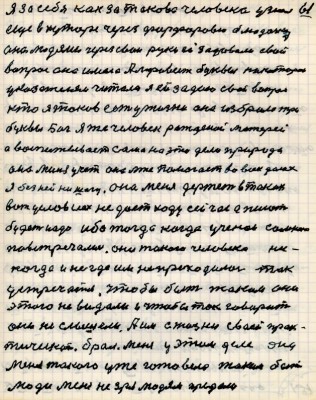 я за себя как за такого человека узнал 61
еще в хуторе через фарфоровою блюдочку
она людями через свои руки ей задовали свой
вопрос она имела Алфавит буквы на котором
указанием читала я ей задою свой вопрос
кто я таков есть у жизни она избрала три
буквы Бог я же человек рожденой матерей
а воспитывает сама на эти дела природа
она меня учит она же помогает во всех делах
я без ней ни шагу, она меня держит в таких
вот условиях не дает ходу сейчас а писать
будет надо ибо тогда когда ученое со мною
повстречались. они такого человека ни-
когда и негде им не приходилось так
устречать, чтобы быть таким они
этого не видали и чтобы так говорить
они не слышали, А им с жизни своей прак-
тической. брал. меня у этом деле
меня такого уже готового таким быть
люди меня не зря людям